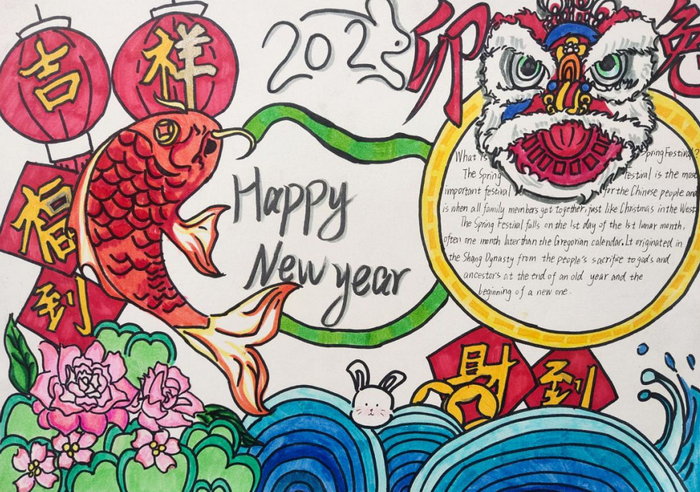 吉祥
202
卯兔
福到
Happy
New year
What is Spring Festival?
The Spring Festival is the most
important festival for the Chinese people and
is when all family members get together, just like Christmas in the West
The Spring Festival falls on the 1st day of the 1st lunar month,
often one month later than the Gregorian calendar. It originated in
the Shang Dynasty from the people's sacrifice to gods and
ancestors at the end of an old year and the
beginning of a new one.
財到